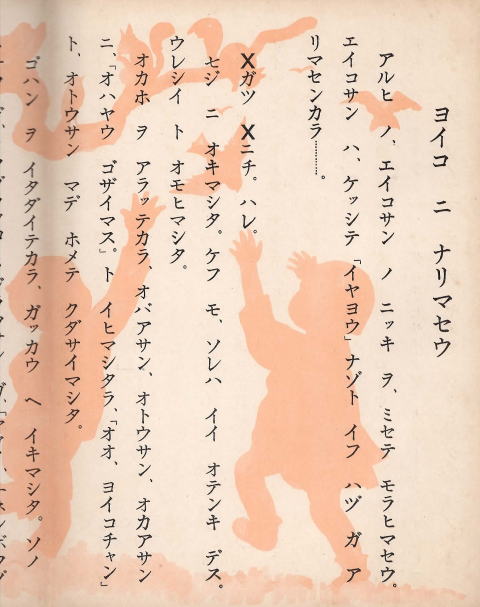 ヨイコ ニ ナリマセウ
アルヒ ノ、エイコサン ノ ニッキ ヲ、ミセテ モラヒマセウ。
エイコサン ハ、ケッシテ「イヤヨウ」ナゾト イフ ハヅ ガ ア
リマセンカラ………。
Xガツ Xニチ。ハレ。
セジ ニ オキマシタ。ケフ モ、ソレハ イイ オテンキ デス。
ウレシイ ト オモヒマシタ。
オカホ ヲ アラッテカラ、オバアサン、オトウサン、オカアサン
ニ、「オハヤウ ゴザイマス。」ト イヒマシタラ、「オオ、ヨイコチャン」
ト、オトウサン マデ ホメテ クダサイマシタ。
ゴハン ヲ イタダイテカラ、ガッカウ ヘ イキマシタ。ソノ